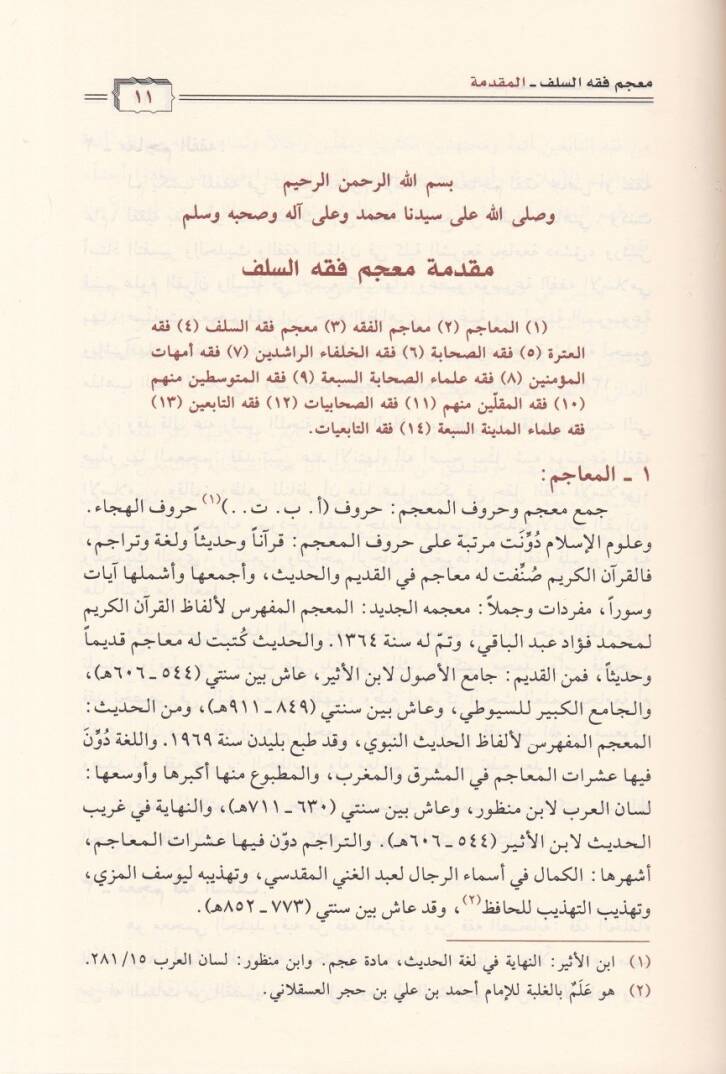 معجم فقه السلف ـ المقدمة
١١
بسم الله الرحمن الرحيم
وصلى الله على سيدنا محمد وعلى آله وصحبه وسلم
مقدمة معجم فقه السلف
(١) المعاجم (٢) معاجم الفقه (٣) معجم فقه السلف (٤) فقه
العترة (٥) فقه الصحابة (٦) فقه الخلفاء الراشدين (٧) فقه أمهات
المؤمنين (٨) فقه علماء الصحابة السبعة (٩) فقه المتوسطين منهم
(١٠) فقه المقلّين منهم (١١) فقه الصحابيات (١٢) فقه التابعين (١٣)
فقه علماء المدينة السبعة (١٤) فقه التابعيات.
١ ـ المعاجم:
جمع معجم وحروف المعجم: حروف (أ. ب. ت..)(١) حروف الهجاء.
وعلوم الإسلام دُوِّنَت مرتبة على حروف المعجم: قرآناً وحديثاً ولغة وتراجم،
فالقرآن الكريم صُنِّفت له معاجم في القديم والحديث، وأجمعها وأشملها آيات
وسوراً، مفردات وجملاً: معجمه الجديد: المعجم المفهرس لألفاظ القرآن الكريم
لمحمد فؤاد عبد الباقي، وتمّ له سنة ١٣٦٤. والحديث كُتبت له معاجم قديماً
وحديثاً، فمن القديم: جامع الأصول لابن الأثير، عاش بين سنتي (٥٤٤ ـ ٦٠٦هـ)،
والجامع الكبير للسيوطي، وعاش بين سنتي (٨٤٩ ـ ٩١١هـ)، ومن الحديث:
المعجم المفهرس لألفاظ الحديث النبوي، وقد طبع بليدن سنة ١٩٦٩. واللغة دُوِّنَ
فيها عشرات المعاجم في المشرق والمغرب، والمطبوع منها أكبرها وأوسعها:
لسان العرب لابن منظور، وعاش بين سنتي (٦٣٠ ـ ٧١١هـ)، والنهاية في غريب
الحديث لابن الأثير (٥٤٤ ـ ٦٠٦هـ). والتراجم دوّن فيها عشرات المعاجم،
أشهرها: الكمال في أسماء الرجال لعبد الغني المقدسي، وتهذيبه ليوسف المزي،
وتهذيب التهذيب للحافظ(٢)، وقد عاش بين سنتي (٧٧٣ ـ ٨٥٢هـ).
(١) ابن الأثير: النهاية في لغة الحديث، مادة عجم. وابن منظور: لسان العرب ٢٨١/١٥.
(٢) هو عَلَمٌ بالغلبة للإمام أحمد بن علي بن حجر العسقلاني.